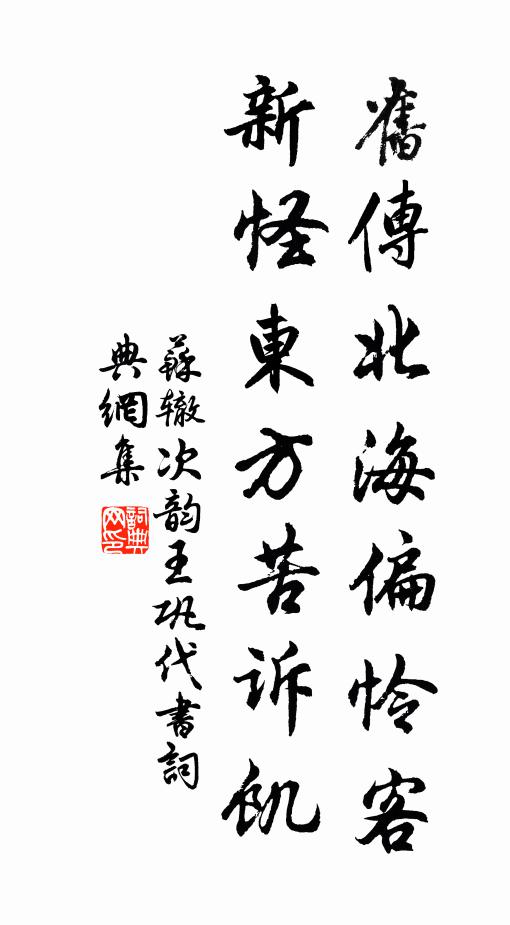 舊傳北海偏憐客
新怪東方苦訴飢
蘇辙次韵王巩代書詞
典網集
詞典
网印